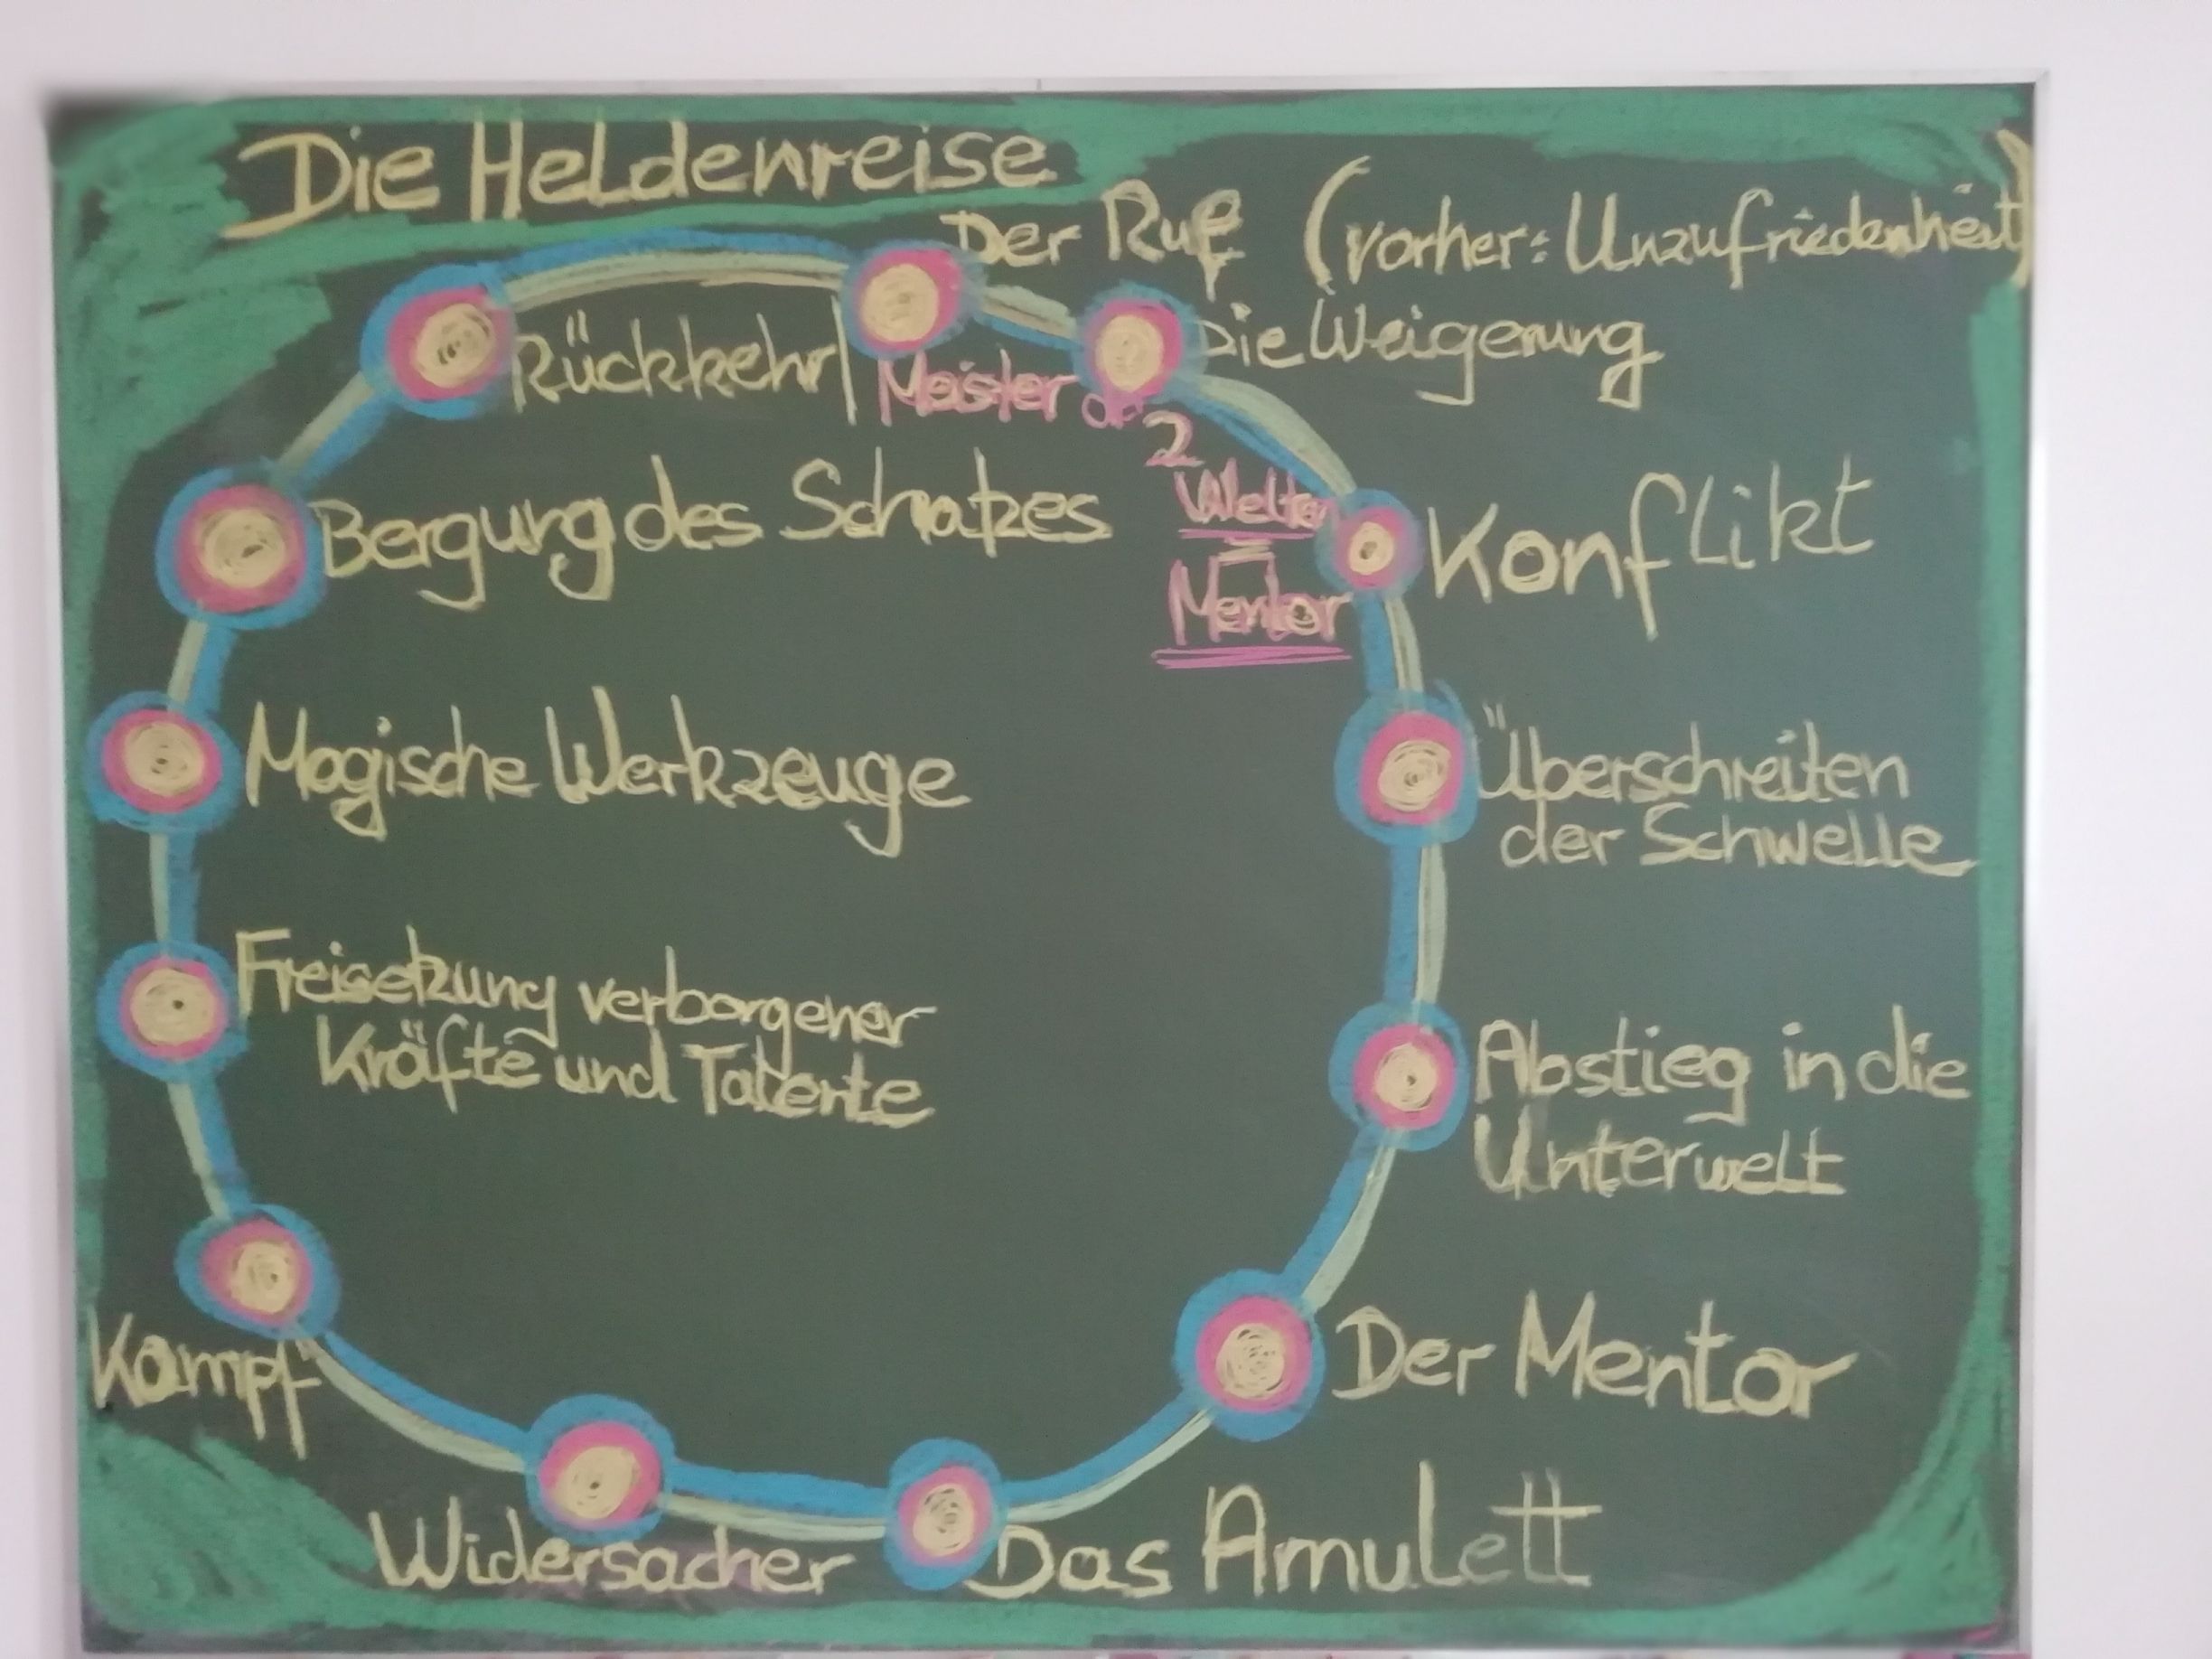 Die Heldenreise
Der Ruf (vorher: Unzufriedenheit)
Die Weigerung
Konflikt
Überschreiten
der Schwelle
Abstieg in die
Unterwelt
Der Mentor
Das Amulett
Widersacher
Kampf
Freisetzung verborgener
Kräfte und Talente
Magische Werkzeuge
Bergung des Schatzes
Rückkehr
Meister der
2
Welten
=
Mentor